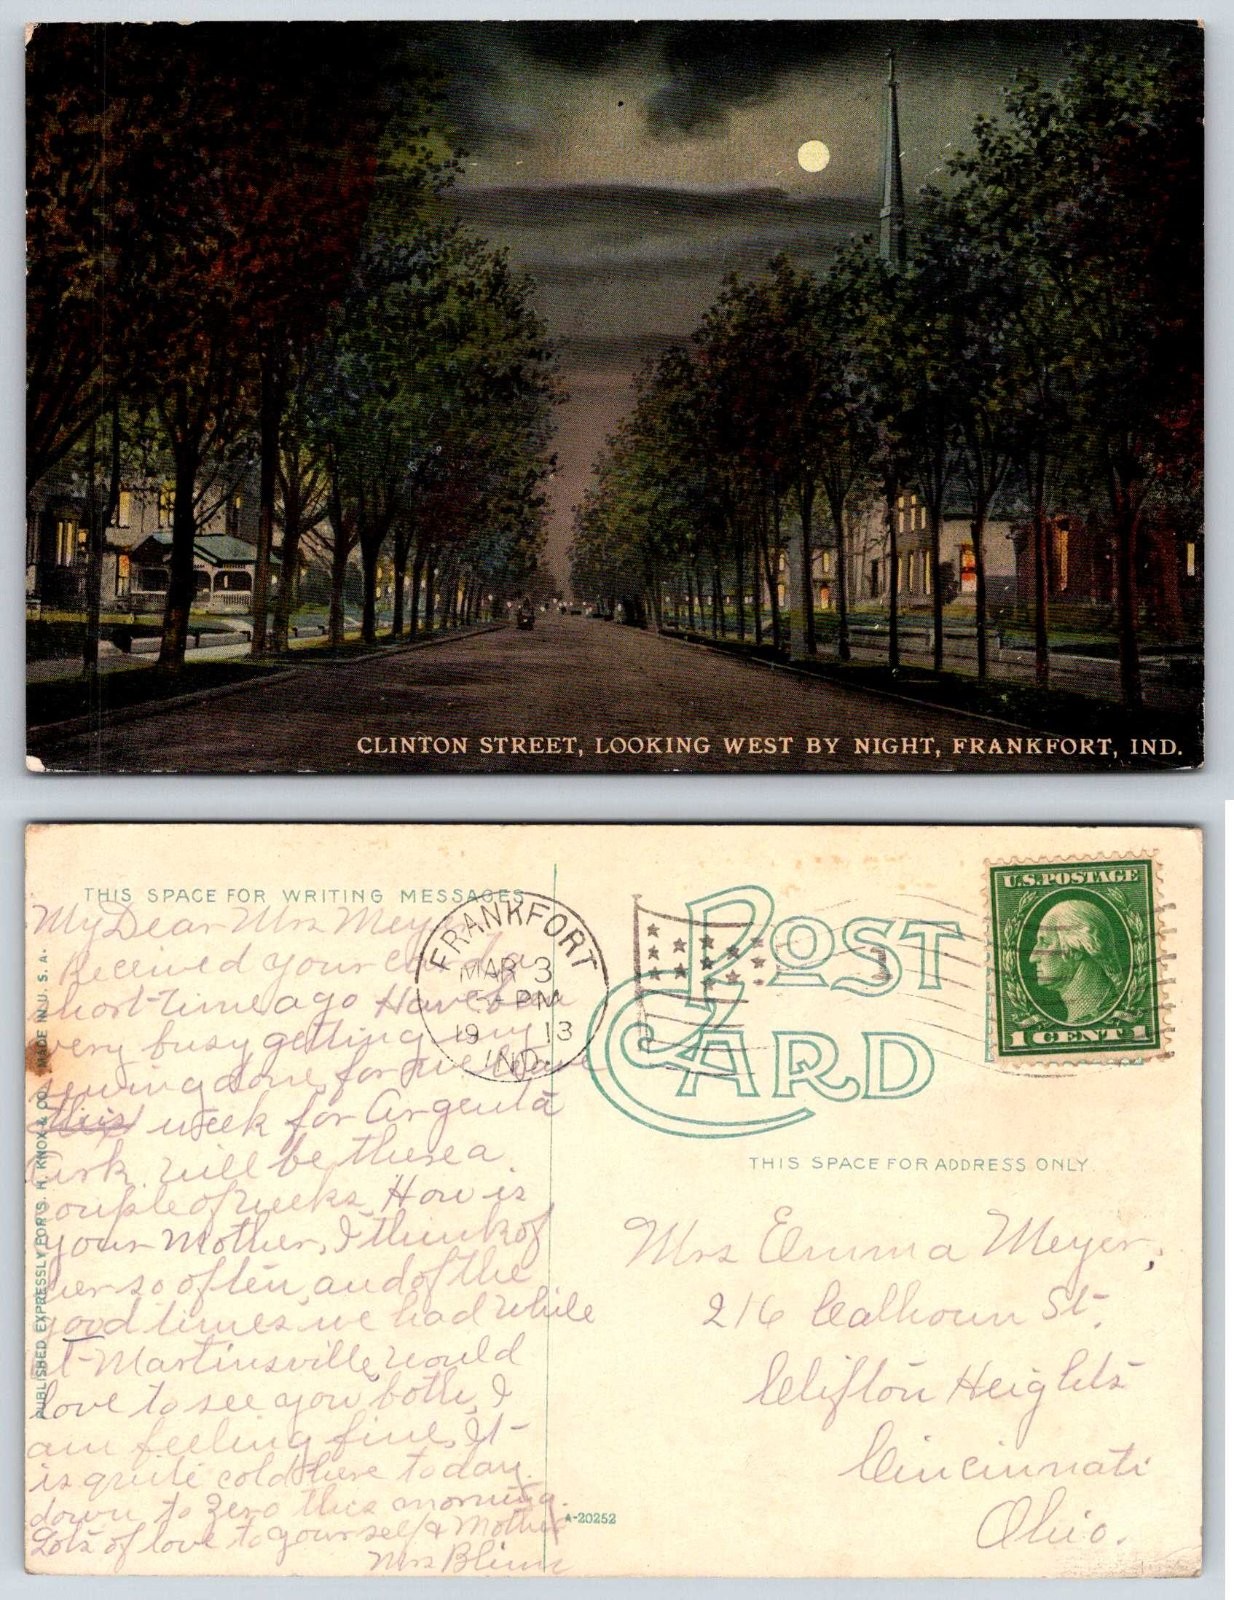 CLINTON STREET, LOOKING WEST BY NIGHT, FRANKFORT, IND.
THIS SPACE FOR WRITING MESSAGES
My Dear Mrs Meyer
Received your card a
short time ago Have been
very busy getting my
sewing done, for we leave
this week for Argenta
Ark. will be there a
couple of weeks, How is
your Mother, I think of
her so often, and of the
good times we had while
at Martinsville, would
love to see you both, I
am feeling fine, It
is quite cold here today.
down to Zero this morning.
Lots of love to yourself & Mother
Mrs Blinn
PUBLISHED EXPRESSLY FOR S. H. KNOX & CO. MADE IN U. S. A.
FRANKFORT
MAR 3
PM
19 13
IND.
POST
CARD
U.S. POSTAGE
1 CENT 1
THIS SPACE FOR ADDRESS ONLY
Mrs Emma Meyer,
216 Calhoun St.
Clifton Heights
Cincinnati
Ohio.
A-20252